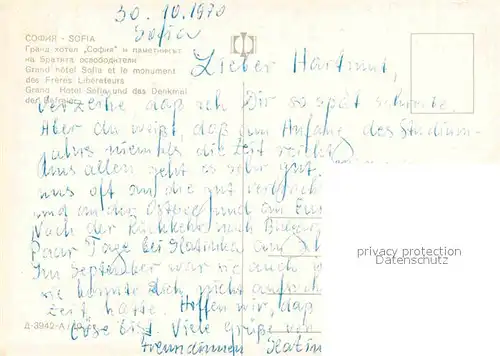 30. 10. 1970
Sofia
СОФИЯ - SOFIA
Гранд хотел „София“ и паметникът
на братята освободители
Grand hôtel Sofia et le monument
des Frères Libérateurs
Grand Hotel Sofia und das Denkmal
der Befreier
Lieber Hartmut,
verzeihe, daß ich Dir so spät schreibe.
Aber du weißt, daß zum Anfang des Studien-
jahrs niemals die Zeit reicht
Uns allen geht es sehr gut.
uns oft an die gut verbrach
und an der Ostsee und im
Nach der Rückkehr nach
Paar Tage bei Slatinka am
Im September war sie auch
sie konnte Dich nicht
Zeit hatte. Hoffen wir, daß
böse bist. Viele Grüße von
Freundinnen Slatin
privacy protection
Datenschutz
Д-3942-А